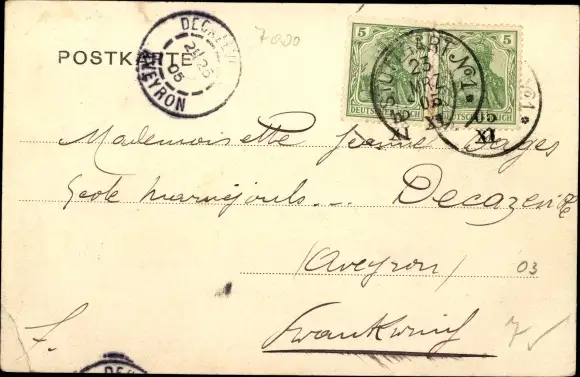 POSTKARTE
DECAZEVILLE
25
05
AVEYRON
7000
5 5
DEUTSCHES REICH
DEUTSCHES REICH
STUTTGART No 1
23
MRZ
05
XI
No 1
05
XI
Mademoiselle Jeanne
Ecole Decazeville
(Aveyron) 03
Frankreich 7
F.
DEC